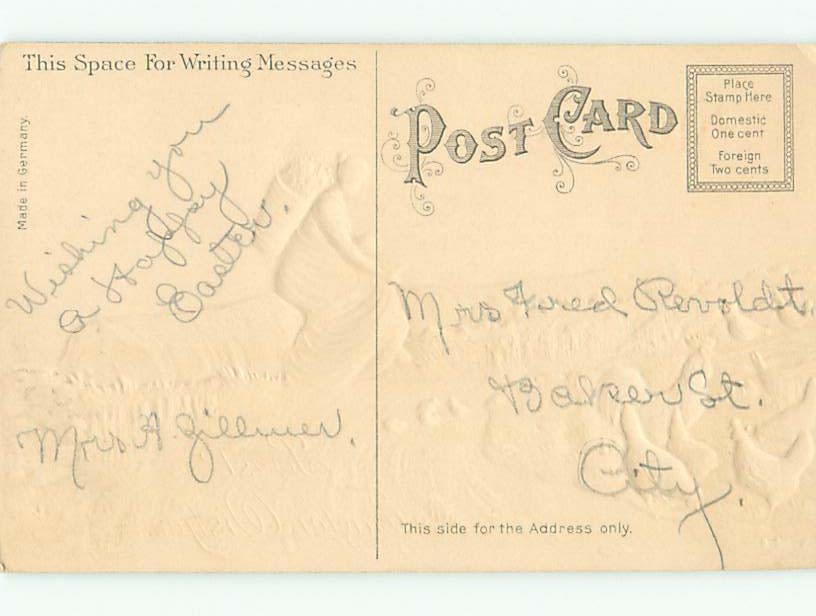 This Space For Writing Messages
Made in Germany.
Wishing you
a Happy
Easter.
Mrs A. Gillmer.
POST CARD
Place
Stamp Here
Domestic
One cent
Foreign
Two cents
Mrs Fred Revoldt.
Baker St.
City.
This side for the Address only.